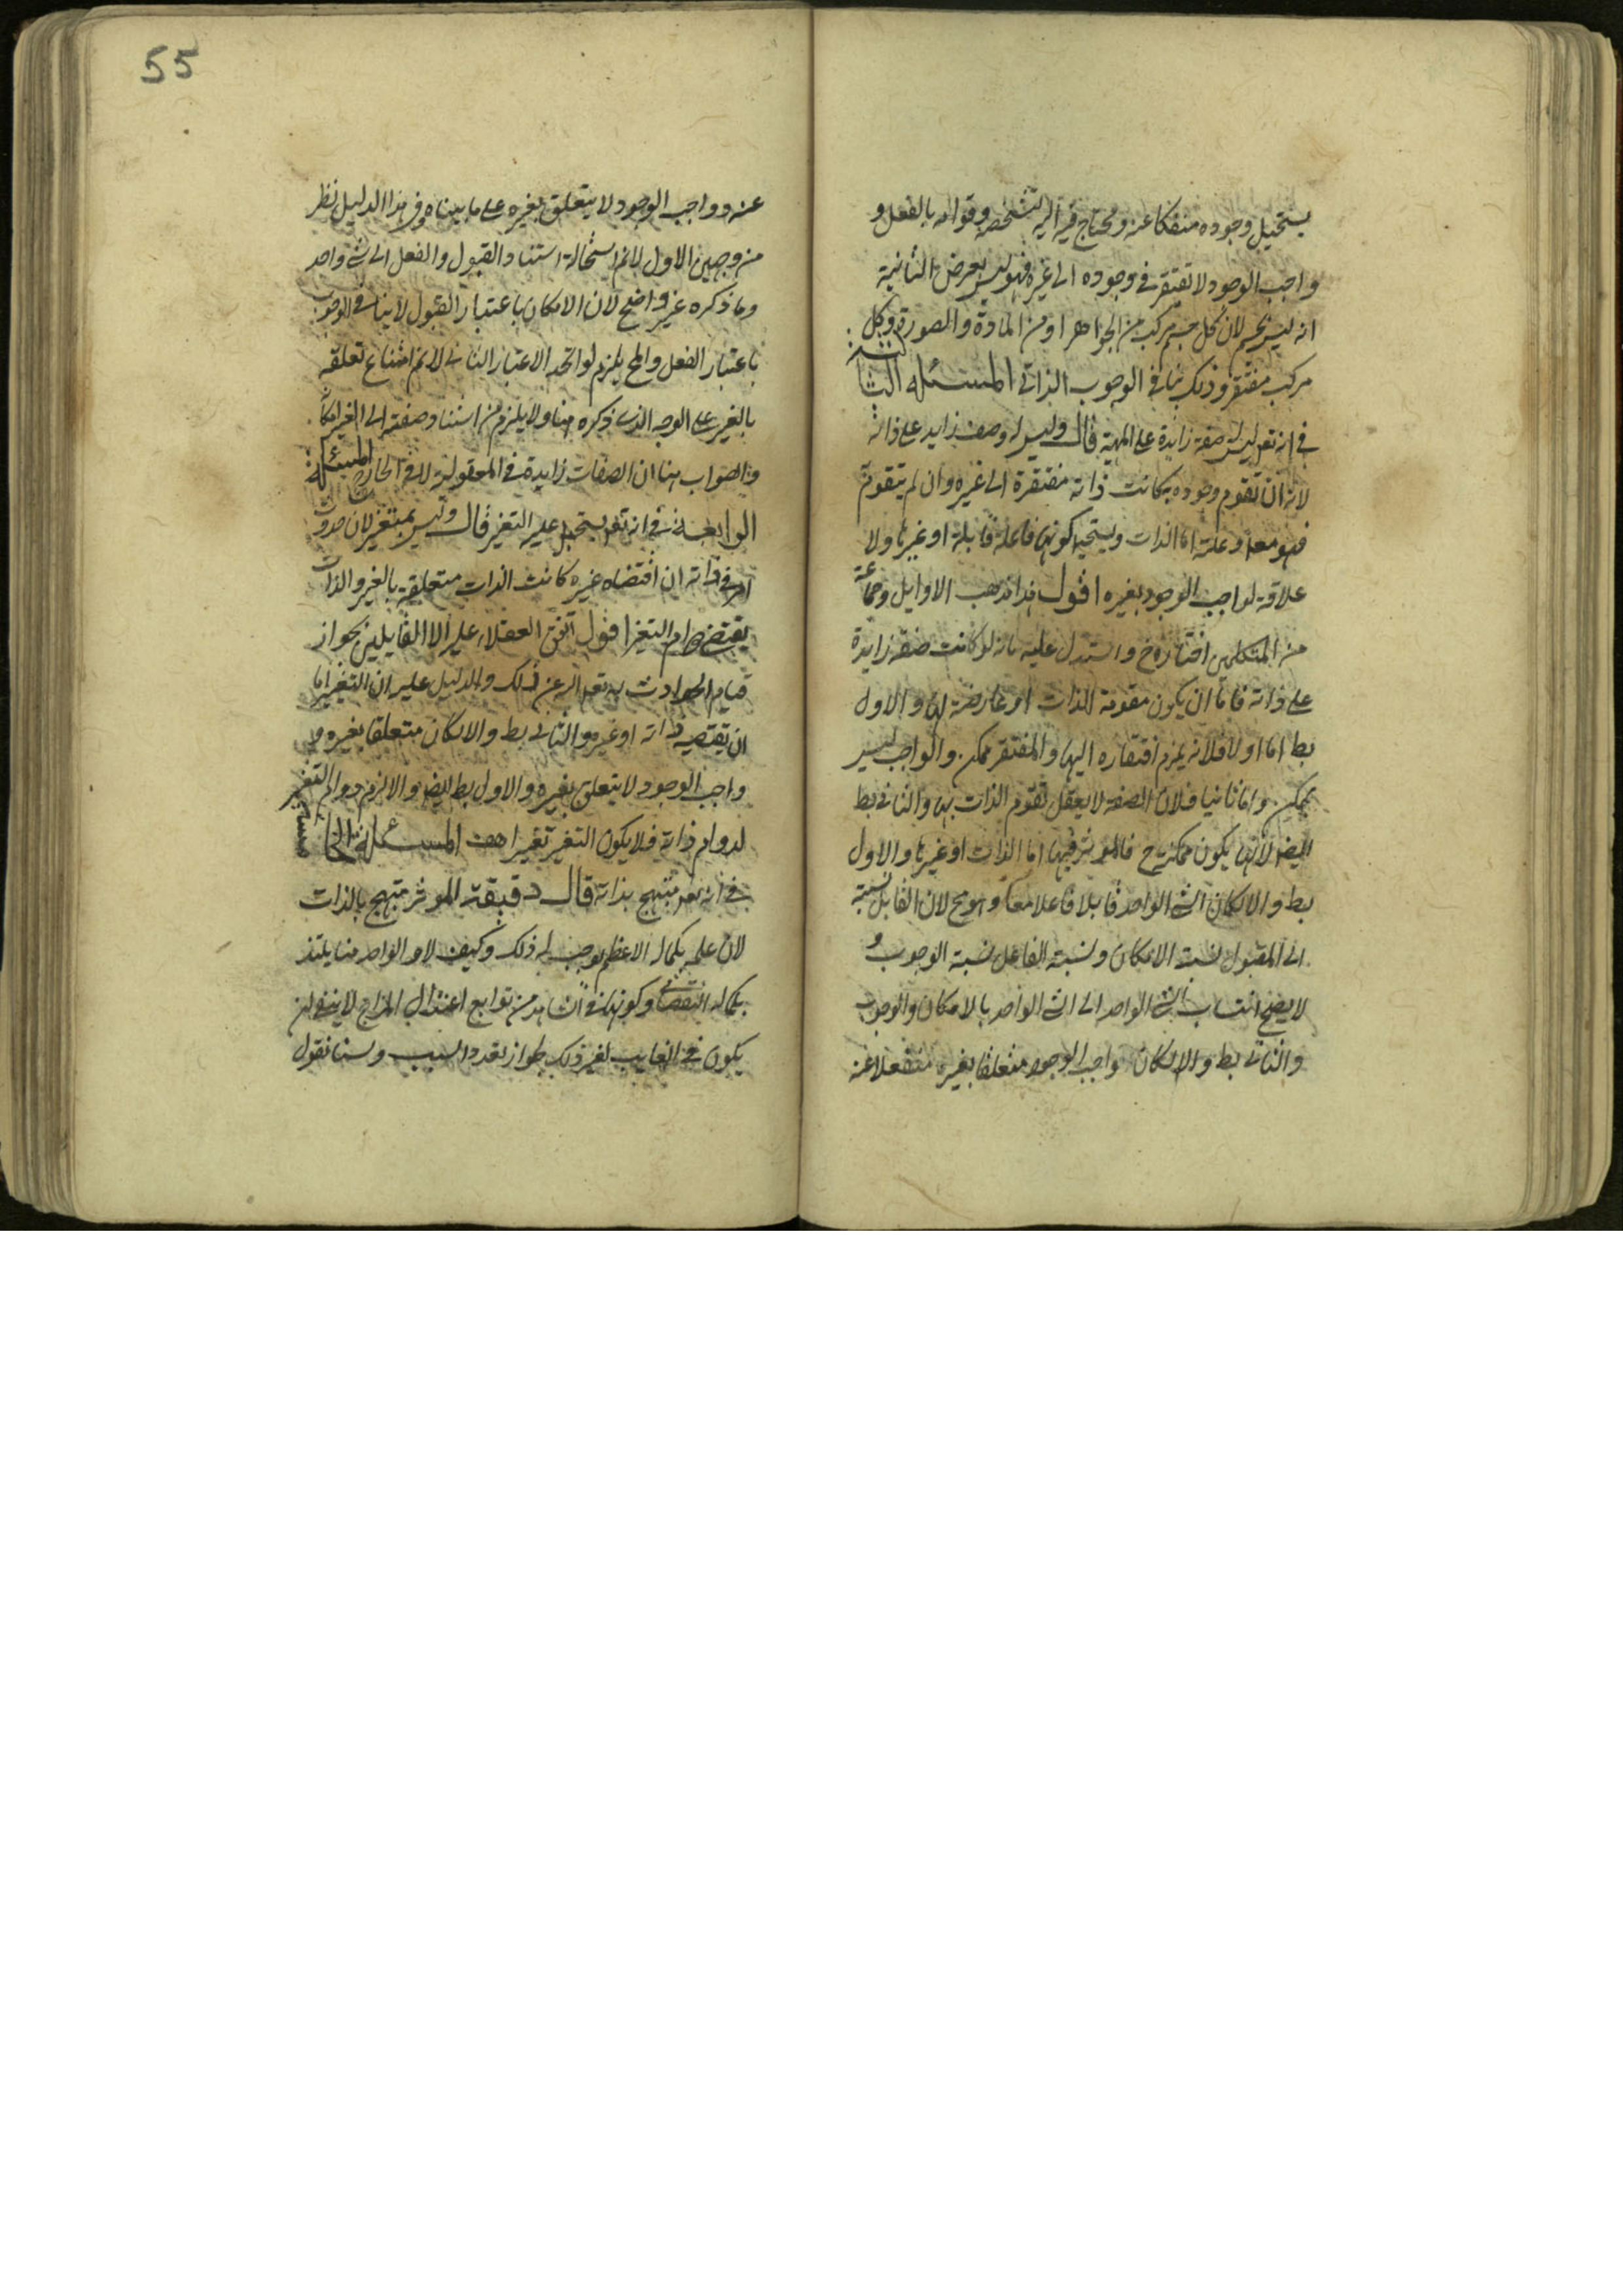 يستحيل وجوده منفكا عنه ويحتاج فيه اليه تشخصه وقوامه بالفعل و
واجب الوجود لا يفتقر في وجوده الى غيره فهو ليس بعرض الثانية
انه ليس بجسم لان كل جسم مركب من الجواهر او من المادة والصورة وكل
مركب مفتقر وذلك ينافي الوجوب الذاتي المسئلة الثالثة
في انه تعه ليس له صفة زايدة على المهية قال وليس له وصف زايد على ذاته
لانه ان تقوم وجوده به كانت ذاته مفتقرة الى غيره وان لم يتقوم
فهو معلول وعلته اما الذات ويستحيل كونها فاعلة قابلة او غيرها ولا
علاقة لواجب الوجود بغيره اقول هذا مذهب الاوايل وجماعة
من المتكلمين اختاره خ واستدل عليه بانه لو كانت صفة زايدة
على ذاته فاما ان يكون مقومة للذات او عارضة لها والاول
بط اما اولا فلانه يلزم افتقاره اليها والمفتقر ممكن والواجب ليس
بممكن واما ثانيا فلان الصفة لا يعقل تقوم الذات بها والثاني بط
ايضا لانها يكون ممكنة ح فالموثر فيها اما الذات او غيرها والاول
بط والا لكان الشئ الواحد قابلا فاعلا معا وهو مح لان القابل نسبته
الى المقبول نسبة الامكان ونسبة الفاعل نسبة الوجوب و
لا يصح انتساب الشئ الواحد الى الشئ الواحد بالامكان والوجوب
والثاني بط والا لكان واجب الوجود متعلقا بغيره منفعلا عنه
55
عنه وواجب الوجود لا يتعلق بغيره على ما بيناه وفي هذا الدليل نظر
من وجهين الاول لا نم استحالة استناد القبول والفعل الى شئ واحد
وما ذكره غير واضح لان الامكان باعتبار القبول لا ينافي الوجوب
باعتبار الفعل والمح يلزم لو اتحد الاعتبار الثاني لا نم امتناع تعلقه
بالغير على الوجه الذي ذكره هنا ولا يلزم من استناد صفته الى الغير امكانه
والصواب هنا ان الصفات زايدة في المعقولية لا في الخارج المسئلة
الرابعة في انه تعه يستحيل عليه التغير قال وليس بمتغير لان حدوث
امر في ذاته ان اقتضاه غيره كانت الذات متعلقة بالغير والذات
يقتضي دوام التغير اقول اتفق العقلاء عليه الا القايلين بجواز
قيام الحوادث به تعه الله عن ذلك والدليل عليه ان التغير اما
ان يقتضيه ذاته او غيره والثاني بط والا لكان متعلقا بغيره و
واجب الوجود لا يتعلق بغيره والاول بط ايضا والا لزم دوام التغير
لدوام ذاته فلا يكون التغير تغيرا هف المسئلة الخامسة
في انه تعه مبتهج بذاته قال دقيقة الموثر مبتهج بالذات
لان علمه بكماله الاعظم يوجب له ذلك وكيف لا والواحد منا يلتذ
بكماله النقصاني وكونها في الشاهد من توابع اعتدال المزاج لا ينفي ان
يكون في الغايب لغير ذلك لجواز تعدد السبب ولسنا نقول